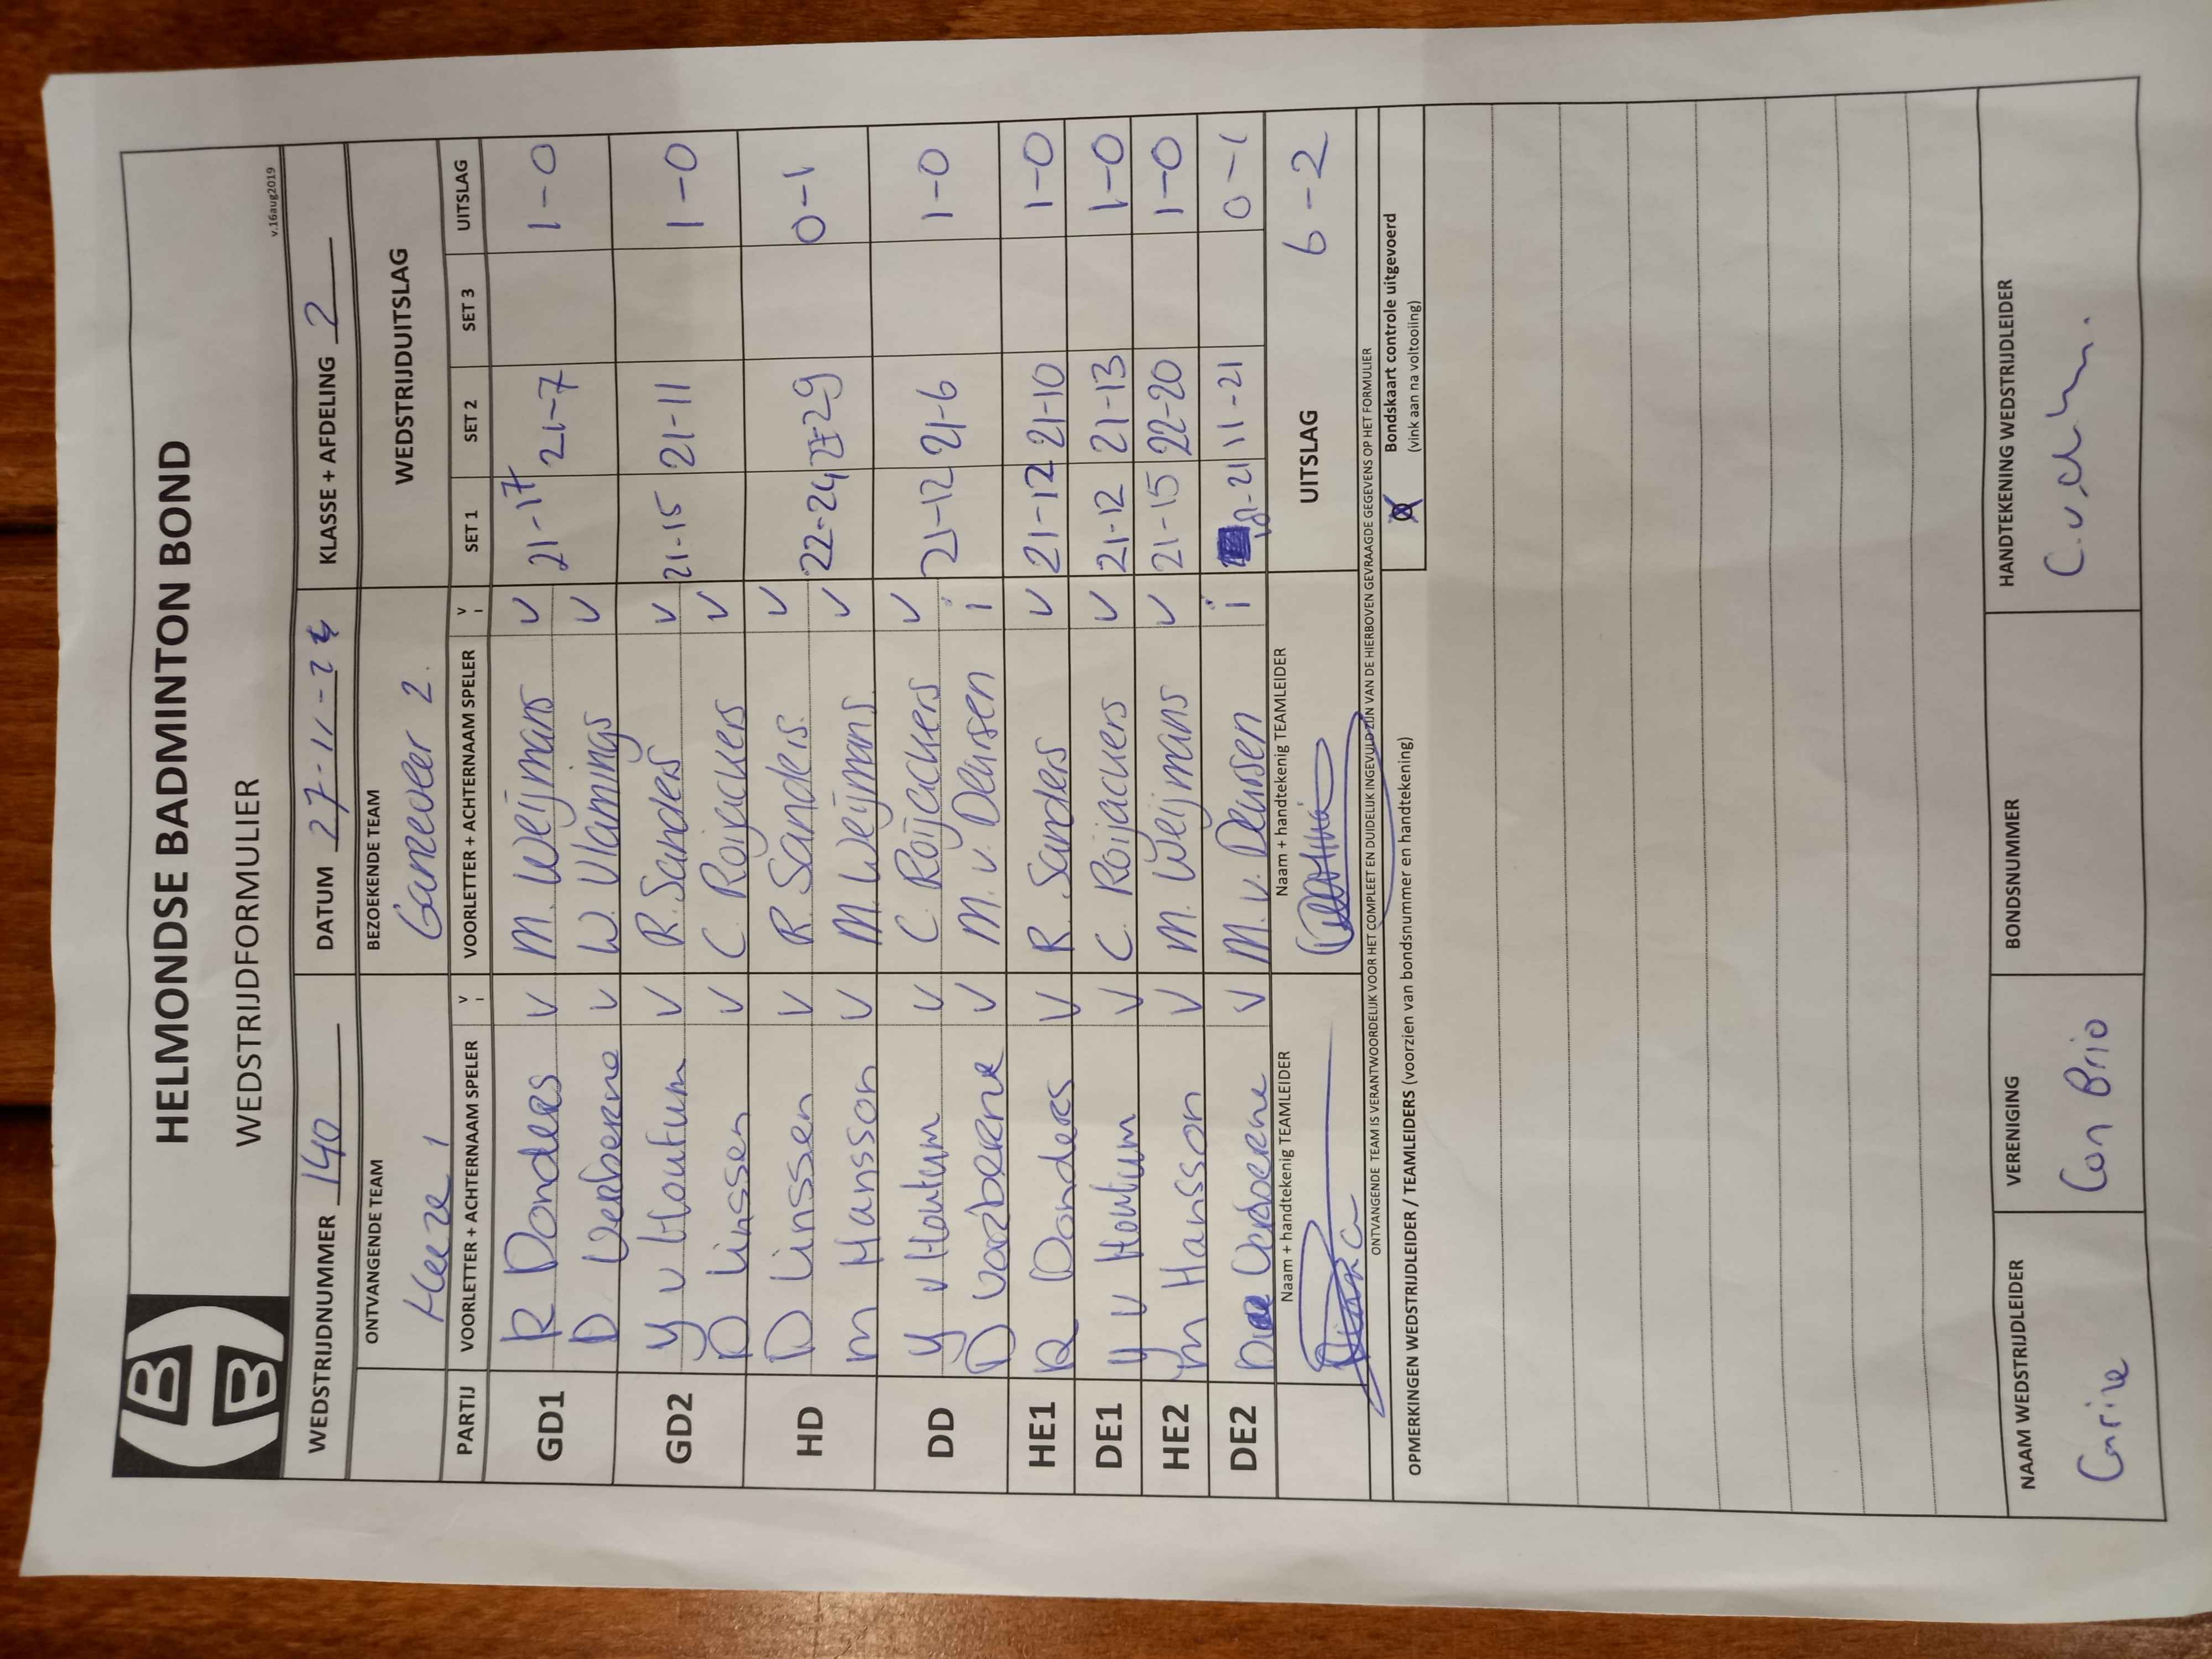 HELMONDSE BADMINTON BOND
WEDSTRIJDFORMULIER
v.16aug2019
WEDSTRIJDNUMMER 140 DATUM 27-11-2 KLASSE + AFDELING 2
ONTVANGENDE TEAM BEZOEKENDE TEAM WEDSTRIJDUITSLAG
Heeze 1 Ganzeveer 2
PARTIJ VOORLETTER + ACHTERNAAM SPELER V I VOORLETTER + ACHTERNAAM SPELER V I SET 1 SET 2 SET 3 UITSLAG
GD1 R Donders V M. Weijmans V 21-17 21-7 1-0
D Verberne V W. Vlamings V
GD2 Y v Houtum V R. Sanders V 21-15 21-11 1-0
D Linssen V C Roijackers V
HD D Linssen V R. Sanders. V 22-24 0-1
M Hansson V M. Weijmans V
DD Y v Houtum V C. Roijackers V 21-12 21-6 1-0
D Verberne V M. v. Deursen i
HE1 R Donders V R. Sanders V 21-12 21-10 1-0
DE1 Y v Houtum V C. Roijackers V 21-12 21-13 1-0
HE2 M Hansson V M. Weijmans V 21-15 22-20 1-0
DE2 Verberne V M. v. Deursen i 11-21 0-1
Naam + handtekenig TEAMLEIDER Naam + handtekenig TEAMLEIDER UITSLAG 6-2
ONTVANGENDE TEAM IS VERANTWOORDELIJK VOOR HET COMPLEET EN DUIDELIJK INGEVULD ZIJN VAN DE HIERBOVEN GEVRAAGDE GEGEVENS OP HET FORMULIER
Bondskaart controle uitgevoerd
(vink aan na voltooiing)
OPMERKINGEN WEDSTRIJDLEIDER / TEAMLEIDERS (voorzien van bondsnummer en handtekening)
NAAM WEDSTRIJDLEIDER VERENIGING BONDSNUMMER HANDTEKENING WEDSTRIJDLEIDER
Carine Con Brio